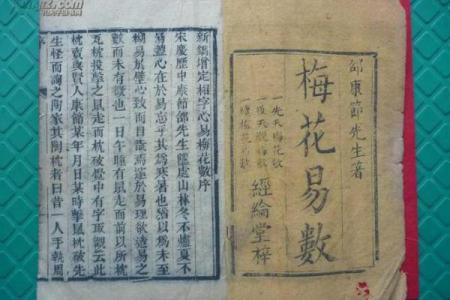 邵康節先生著
梅花易數
一先天梅花數
一後天觀梅數
經綸堂梓
新鐫增定相字心易梅花數序
宋慶歷中康節邵先生隱處山林冬不爐夏不
扇蓋心在於易忘乎其為寒暑也猶以為未至
糊易於壁心致而目翫焉邃於易理欲造易之
數而未有徵也一日午睡有鼠走而前以所枕
瓦枕投擊之鼠走而枕破覺中有字取觀云此
枕賣與賢人康節某年月日某時擊鼠枕破先
生怪而詢之陶家其陶枕者曰昔一人手執周
序